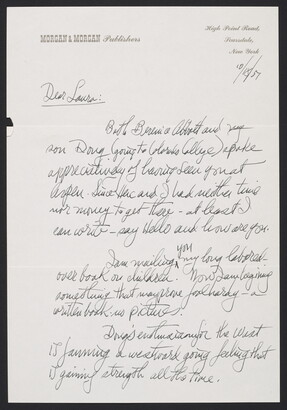 MORGAN & MORGAN Publishers
High Point Road,
Scarsdale,
New York
10/12/51
Dear Laura:
Both Berenice Abbott and my
son Doug (going to Colorado College) spoke
appreciatively of having seen you at
Aspen. Since Hac and I had neither time
nor money to get there - at least I
can write - say Hello and how are you.
I am mailing you my long labored
over book on children. Now I am laying
something that may prove foolhardy - a
written book, no pictures.
Doug's enthusiasm for the West
is fanning a westward going feeling that
is gaining strength all the time.